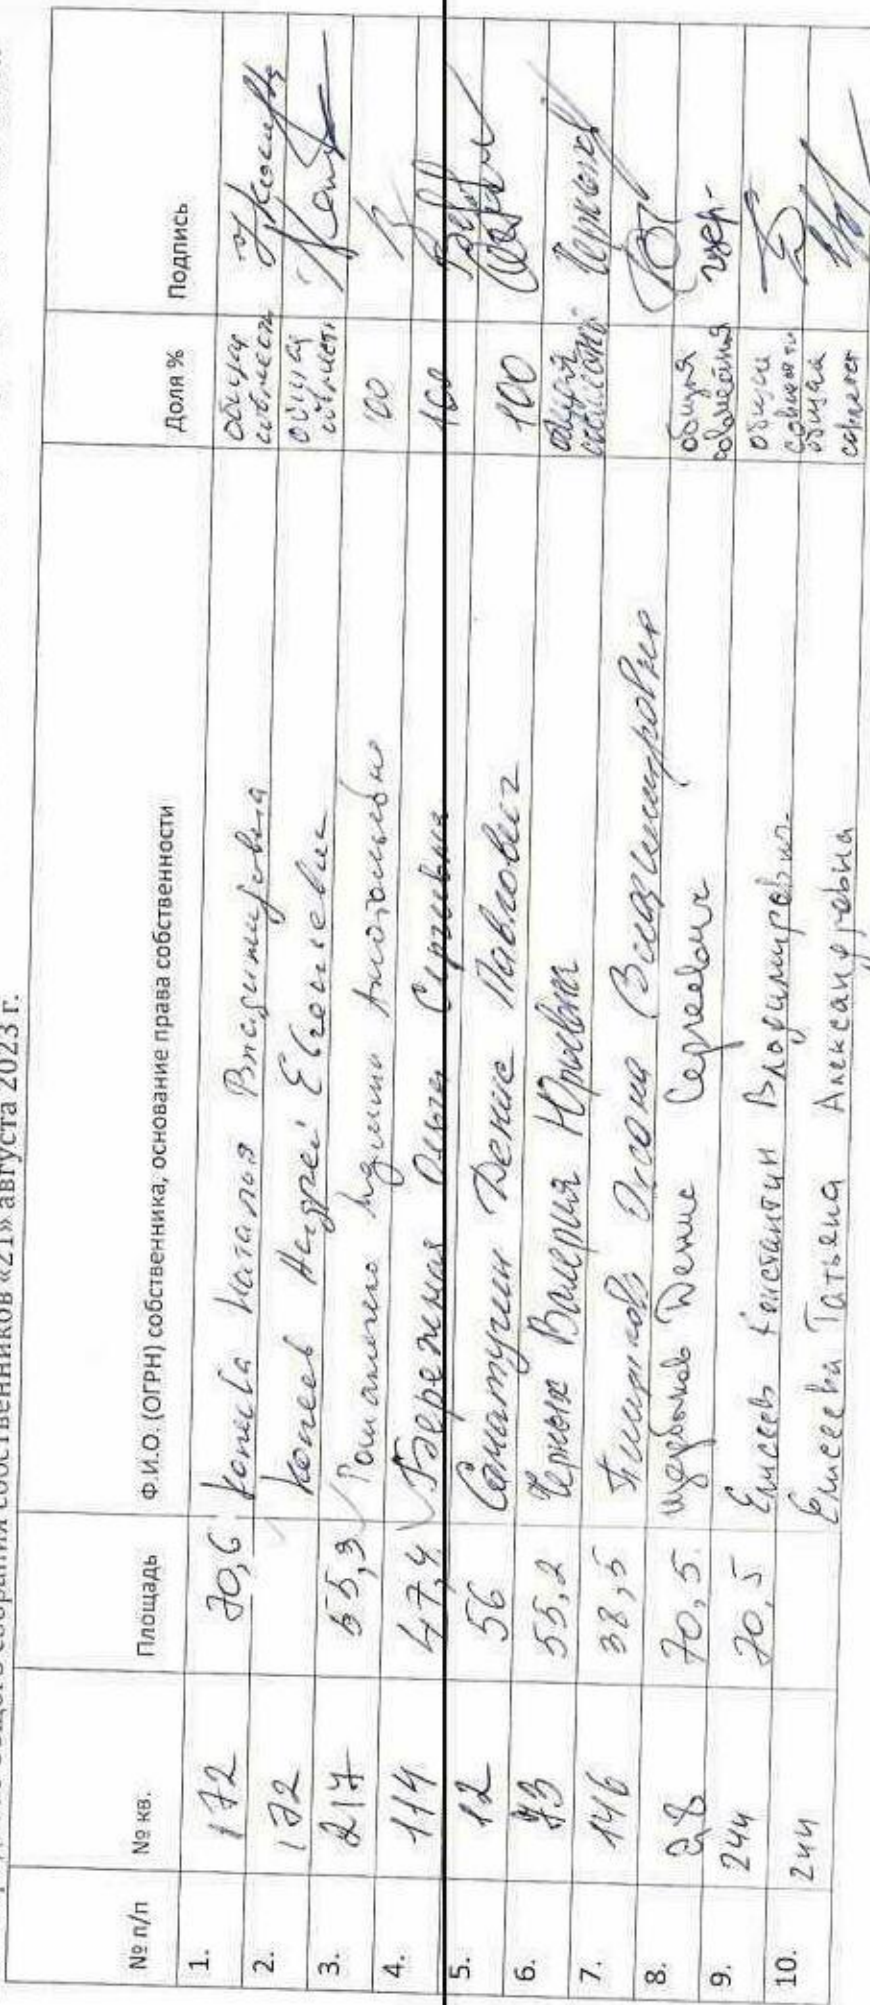 общего собрания собственников «21» августа 2023 г.
№ п/п № кв. Площадь Ф.И.О. (ОГРН) собственника, основание права собственности Доля % Подпись
1. 172 70,6 Копеева Наталья Владимировна общая совместн
2. 172 Копеев Андрей Евгеньевич общая совместн
3. 217 55,9 Анатольевна 100
4. 114 47,4 Бережная Ольга Сергеевна 100
5. 12 56 Саматугин Денис Павлович 100
6. 73 55,2 Черных Валерия Юрьевна общая
7. 146 38,5 Владимировна
8. 28 70,5 Щербаков Денис Сергеевич общая совместная
9. 244 70,5 Елисеев Константин Владимирович общая совместн
10. 244 Елисеева Татьяна Александровна общая совместн